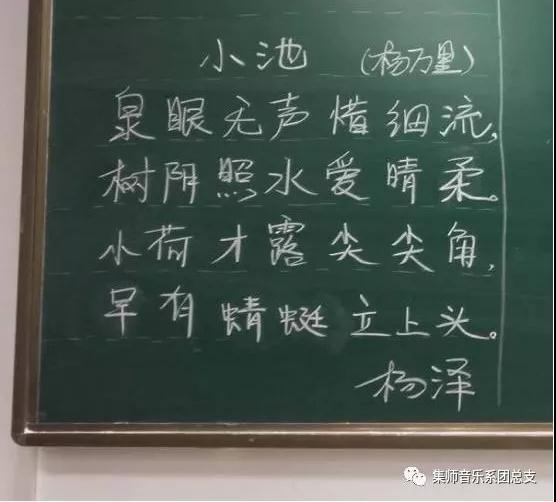 小池 (杨万里)
泉眼无声惜细流,
树阴照水爱晴柔。
小荷才露尖尖角,
早有蜻蜓立上头。
杨泽
集师音乐系团总支